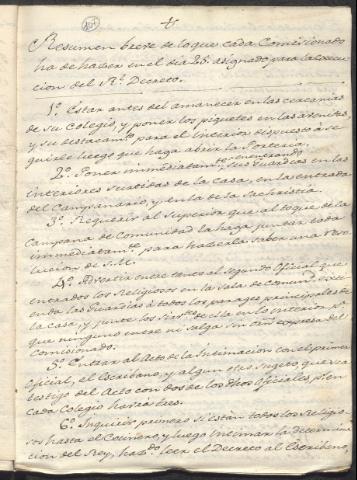 Resumen breve de lo que cada Comisionado
ha de hacer en el dia 25. asignado para la execu
cion del Rl. Decreto.
1º. Estar antes del amanecer en las cercanias
de su Colegio, y poner los piquetes en las avenidas,
y su destacamto. para el interior dispuesto à se
guirle luego que haga abrir la Porteria.
2º. Poner immediatamte. en entrando
sus Guardias en las
interiores salidas de la casa, en la entrada
del Campanario, y en la de la Sachristia.
3º. Requerir al Superior que al toque de la
Campana de Comunidad la haga juntar toda
immediatamte. para hacerla saber una reso
lucion de S. M.
4º. Advertir entre tanto al segundo Oficial que
entrados los Religiosos en la Sala de Comund.
en da las Guardias à todos los parages principales de
la casa, y junte los de ella en lo interior
que ninguno entre ni salga sin orn. expresa del
Comisionado.
5º. Entrar al Acto de la Intimacion con el primer
Oficial, el Escribano, y algun otro Sugeto que sea
testigo del Acto con dos de los dhos Oficiales pr. en
cada Colegio havrà tres.
6º. Inquirir primero si están todos los Religio
sos hasta el Cocinero, y luego intimar la determina
cion del Rey, hacdo. leer el Decreto al Escribano,